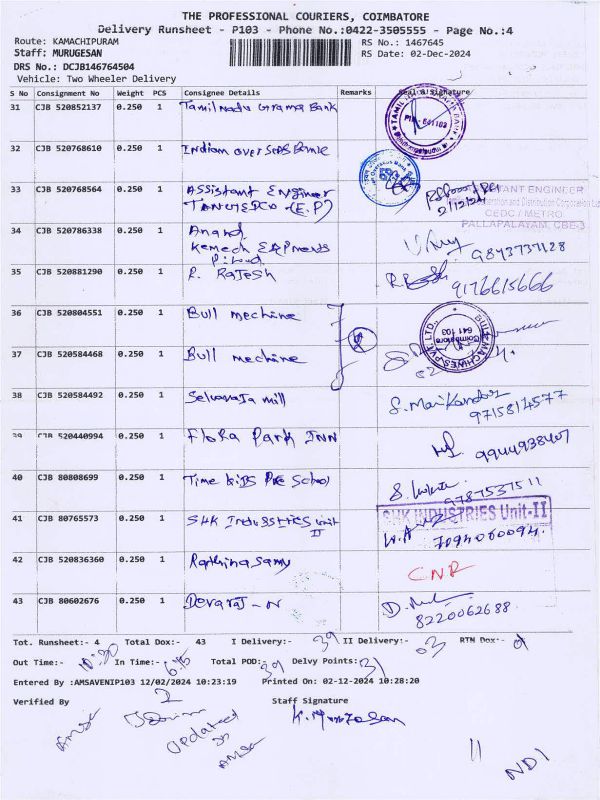 THE PROFESSIONAL COURIERS, COIMBATORE
Delivery Runsheet - P103 - Phone No.:0422-3505555 - Page No.:4
Route: KAMACHIPURAM RS No.: 1467645
Staff: MURUGESAN RS Date: 02-Dec-2024
DRS No.: DCJB146764504
Vehicle: Two Wheeler Delivery
S No Consignment No Weight PCS Consignee Details Remarks Seal & Signature
31 CJB 520852137 0.250 1 Tamil Nadu Grama Bank
PIN - 641103
32 CJB 520768610 0.250 1 Indian overseas Bank
33 CJB 520768564 0.250 1 Assistant Engineer
TANGEDCO - (E.P)
2/12/24
TANT ENGINEER
eration and Distribution Corporation Ltd
CEDC / METRO
PALLAPALAYAM, CBE-3
34 CJB 520786338 0.250 1 Anand
Kemech
9843737128
35 CJB 520881290 0.250 1 R. Rajesh 9176615666
36 CJB 520804551 0.250 1 Bull mechine
BULL MACHINES PVT. LTD.,
Coimbatore
641 103
37 CJB 520584468 0.250 1 Bull mechine
38 CJB 520584492 0.250 1 Selvaraja mill S. Manikandan
9715814577
39 CJB 520440994 0.250 1 Flora Park INN 9944938407
40 CJB 80808699 0.250 1 Time kids Pre School 9787537511
41 CJB 80765573 0.250 1 SHK Industries unit
II
SHK INDUSTRIES Unit-II
7094060094.
42 CJB 520836360 0.250 1 Rathinasamy CNR
43 CJB 80602676 0.250 1 Devaraj - N 8220062688
Tot. Runsheet:- 4 Total Dox:- 43 I Delivery:- 39 II Delivery:- 03 RTN Dox:-
Out Time:- 10:30 In Time:- 6:15 Total POD:- 39 Delvy Points: 31
Entered By :AMSAVENIP103 12/02/2024 10:23:19 Printed On: 02-12-2024 10:28:20
Verified By Staff Signature
K. Murugesan
Updated
11
NDI